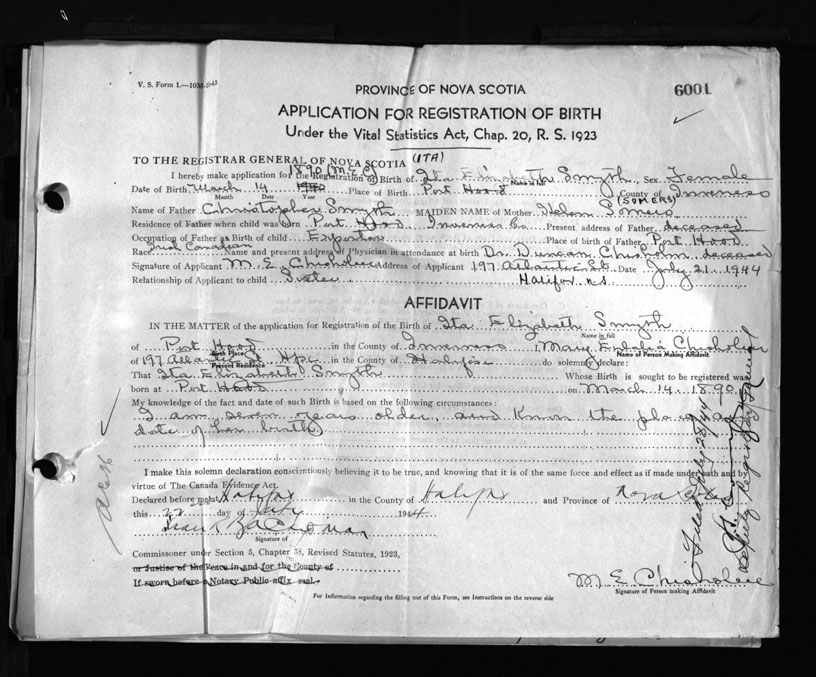 V. S. Form 1.—10M-9-43
PROVINCE OF NOVA SCOTIA
6001
APPLICATION FOR REGISTRATION OF BIRTH
Under the Vital Statistics Act, Chap. 20, R. S. 1923
TO THE REGISTRAR GENERAL OF NOVA SCOTIA (ITA)
1890 (M.E.C)
I hereby make application for the Registration of Birth of Ita Elizabeth Smyth, Sex Female
Name in full
Date of Birth March 14 Place of Birth Port Hood County of Inverness
Month Date Year
(SOMERS)
Name of Father Christopher Smyth MAIDEN NAME of Mother Helen Somers
Residence of Father when child was born Port Hood Inverness Co Present address of Father deceased
Occupation of Father at Birth of child Exporter Place of birth of Father Port Hood
Race Irish Canadian Name and present address of Physician in attendance at birth Dr. Duncan Chisholm deceased
Signature of Applicant M. E. Chisholm Address of Applicant 197 Atlantic St. Date July 21 1944
Relationship of Applicant to child Sister Halifax N.S.
AFFIDAVIT
IN THE MATTER of the application for Registration of the Birth of Ita Elizabeth Smyth
Name in full
of Port Hood in the County of Inverness I, Mary Eulalia Chisholm
Birth Place Name of Person Making Affidavit
of 197 Atlantic St Hfx in the County of Halifax do solemnly declare:
Present Residence
That Ita Elizabeth Smyth Whose Birth is sought to be registered was
born at Port Hood on March 14 1890
My knowledge of the fact and date of such Birth is based on the following circumstances:
I am seven years older, and know the place and
date of her birth
I make this solemn declaration conscientiously believing it to be true, and knowing that it is of the same force and effect as if made under oath and by
virtue of The Canada Evidence Act.
Declared before me at Halifax in the County of Halifax and Province of Nova Scotia
this 22 day of July 1944
Signature of
Commissioner under Section 5, Chapter 38, Revised Statutes, 1923,
or Justice of the Peace in and for the County of
If sworn before a Notary Public affix seal.
M. E. Chisholm
Signature of Person making Affidavit
For Information regarding the filling out of this Form, see Instructions on the reverse side
Filed July 28/44
Deputy Registrar General